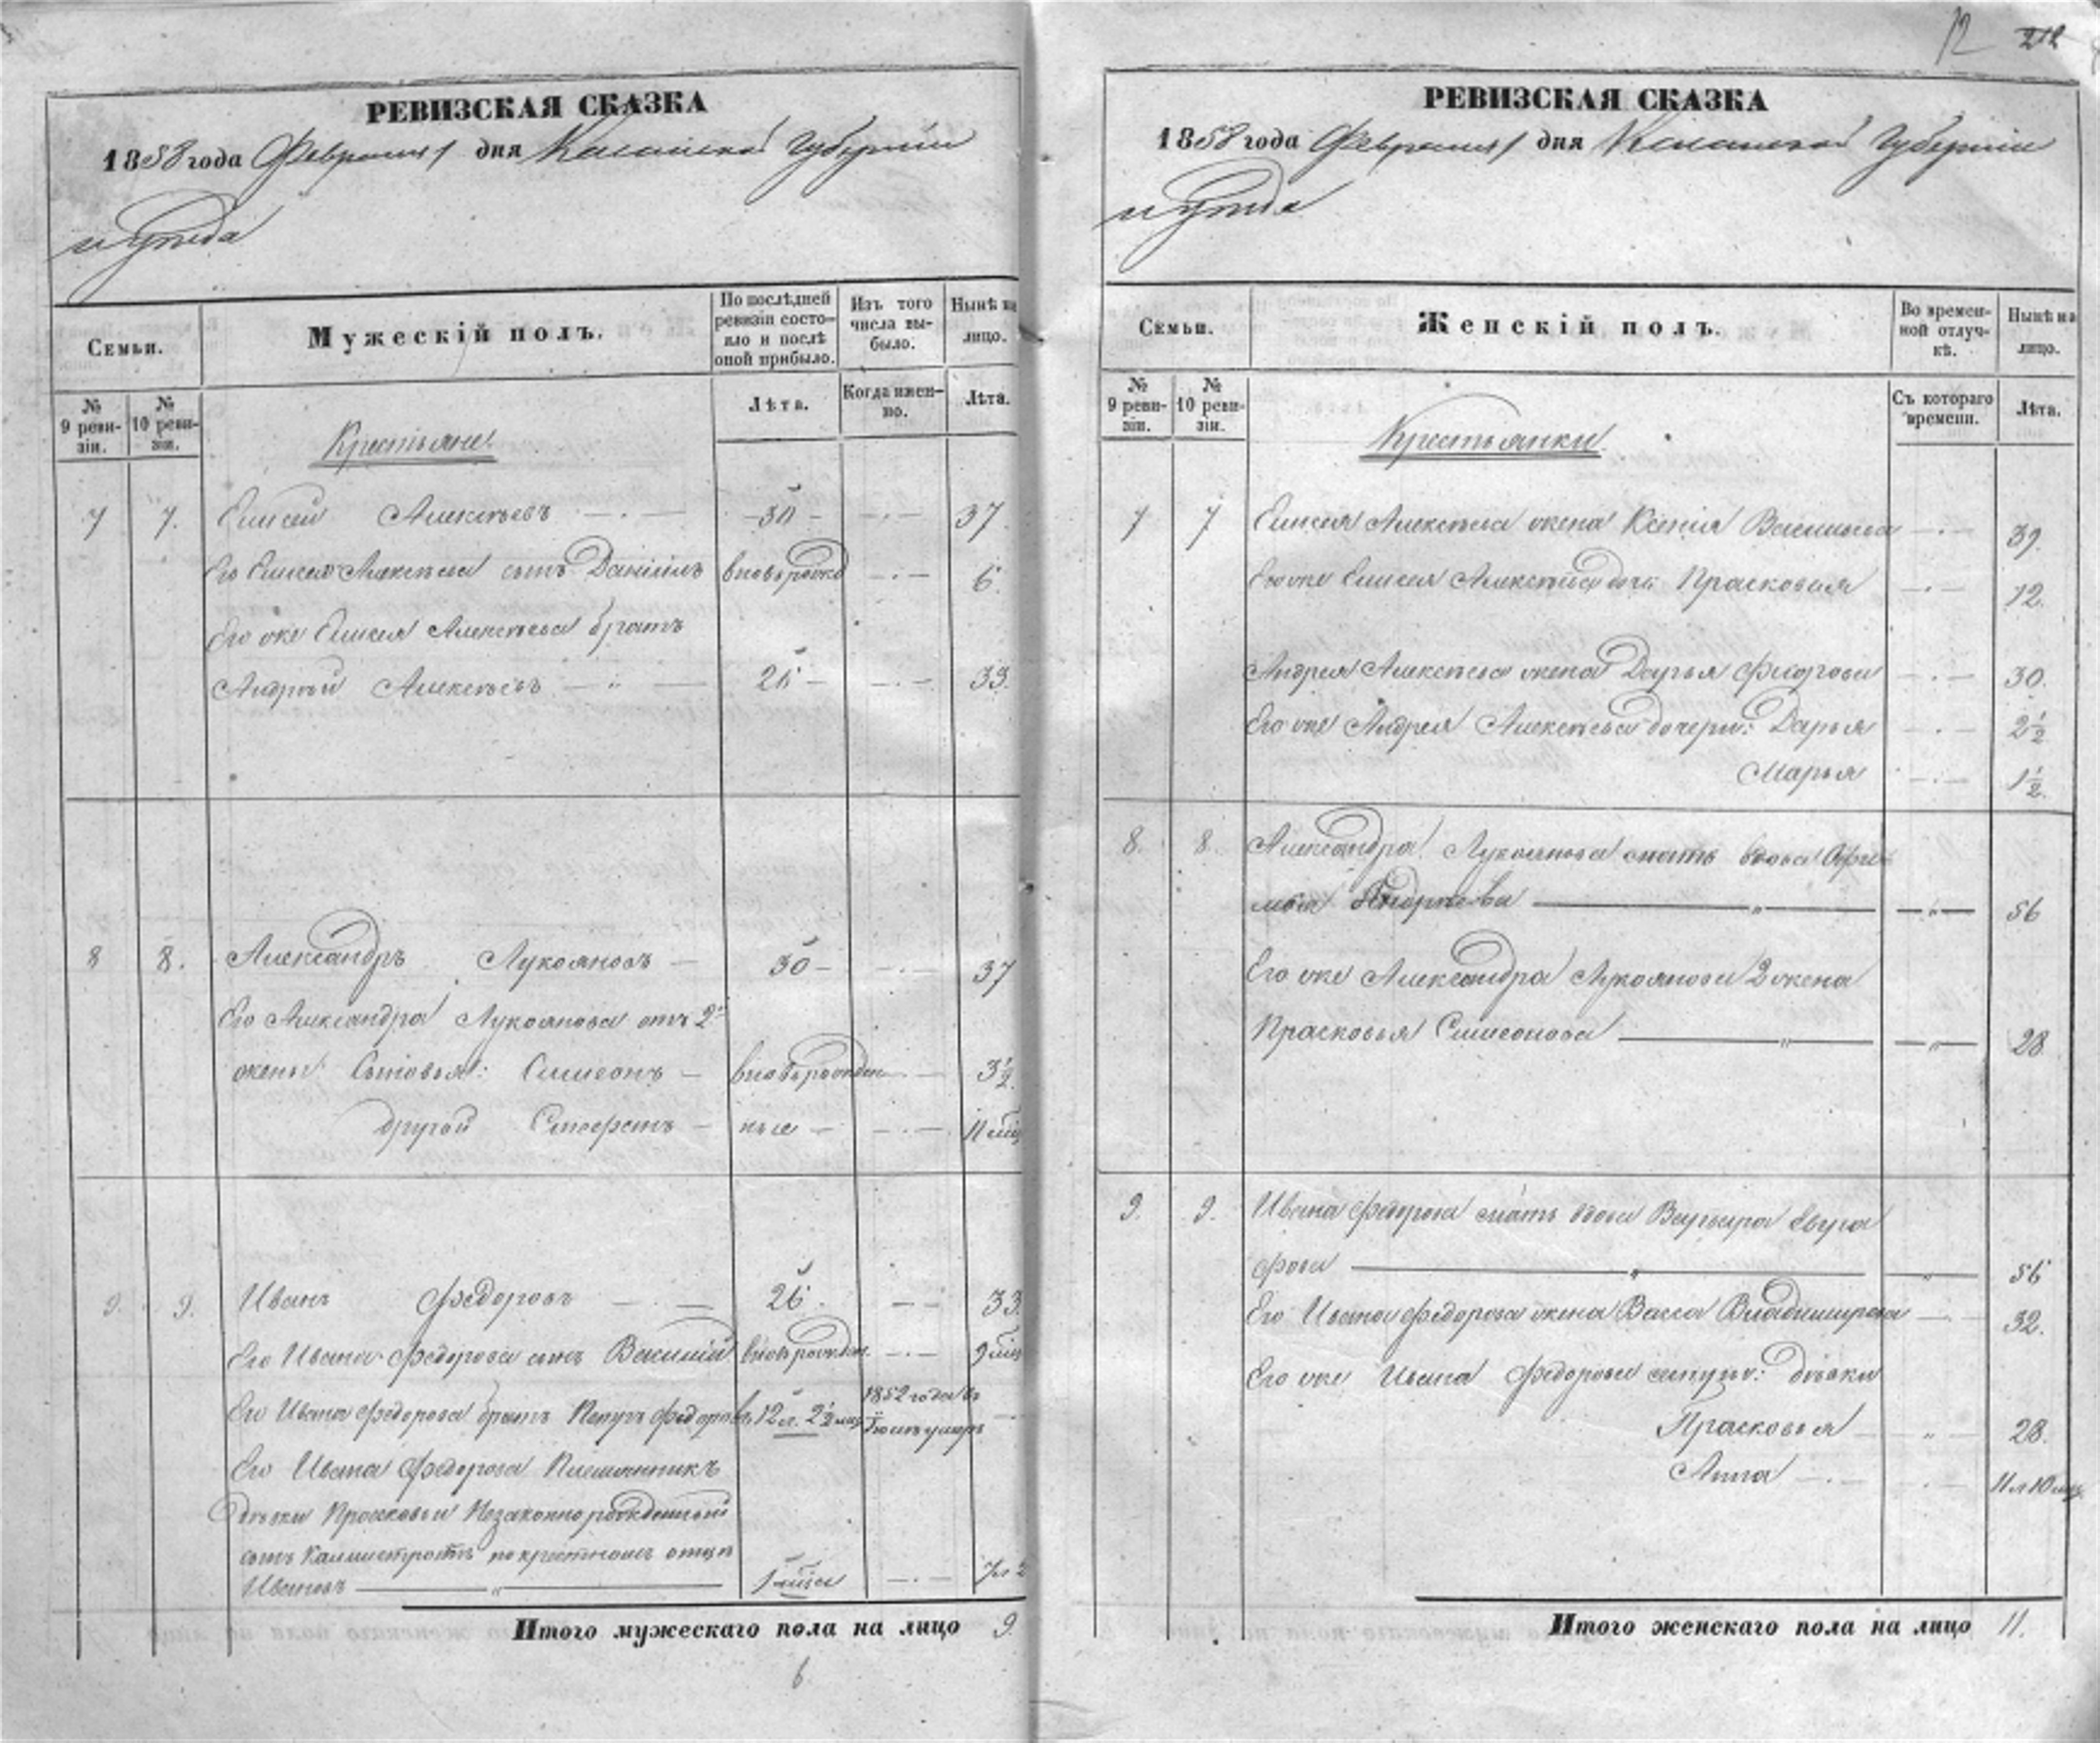 РЕВИЗСКАЯ СКАЗКА
1858 года Февраля 1 дня Казанской Губернiи
и уѣзда
Семьи.
Мужескій полъ.
По послѣдней ревизіи состояло и послѣ оной прибыло.
Изъ того числа выбыло.
Нынѣ на лицо.
№ 9 ревизіи.
№ 10 ревизіи.
Лѣта.
Когда именно.
Лѣта.
Крестьяне.
7 7. Елисей Алексѣевъ 30 37.
Его Елисея Алексѣева сынъ Данiилъ вновьрожд 6.
Его же Елисея Алексѣева братъ
Андрей Алексѣевъ 26 33.
8 8. Александръ Лукояновъ 30 37
Его Александра Лукоянова отъ 2й
жены Сыновья: Симеонъ вновьрожден 3½.
другой Стефанъ ные 11 мѣц
9. 9. Иванъ Федоровъ 26. 33.
Его Ивана Федорова сынъ Василій вновьрожден. 9 мѣц
Его Ивана Федорова братъ Федоровъ 12 л. 2½ мѣц 1852 года въ умеръ
Его Ивана Федорова Племянникъ
Дѣвки Прасковьи Незаконнорожденный
сынъ Каллистратъ по крестномъ отцѣ
Ивановъ 1 мѣца 7 л
Итого мужескаго пола на лицо 9.
6
12 212
РЕВИЗСКАЯ СКАЗКА
1858 года Февраля 1 дня Казанской Губернiи
и уѣзда
Семьи.
Женскій полъ.
Во временной отлучкѣ.
Нынѣ на лицо.
№ 9 ревизіи.
№ 10 ревизіи.
Съ котораго времени.
Лѣта.
Крестьянки
7 7 Елисея Алексѣева жена Ксенiя Васильева 39.
Его же Елисея Алексѣева дочь Прасковья 12.
Андрея Алексѣева жена Дарья Федорова 30.
Его же Андрея Алексѣева дочери: Дарья 2½
Марья 1½.
8. 8. Александра Лукоянова мать вдова
Андреева 56
Его же Александра Лукоянова 2 жена
Прасковья Симеонова 28
9. 9. Ивана Федорова мать вдова Варвара Евгра
фова 56
Его Ивана Федорова жена Васса Владимирова 32.
Его же Ивана Федорова сестры: дѣвки
Прасковья 28.
Анна 11 л 10 мѣц.
Итого женскаго пола на лицо 11.